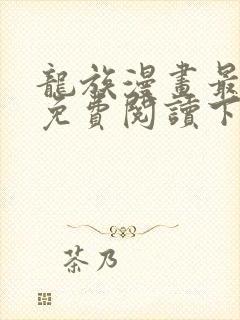 龍族漫畫最
免費閱讀下
茶乃